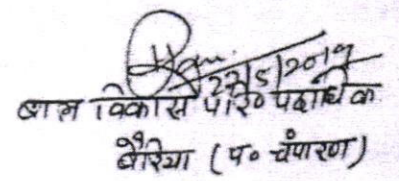 27/5/2019
बाल विकास परि० पदाधिका
बैरिया (प० चंपारण)